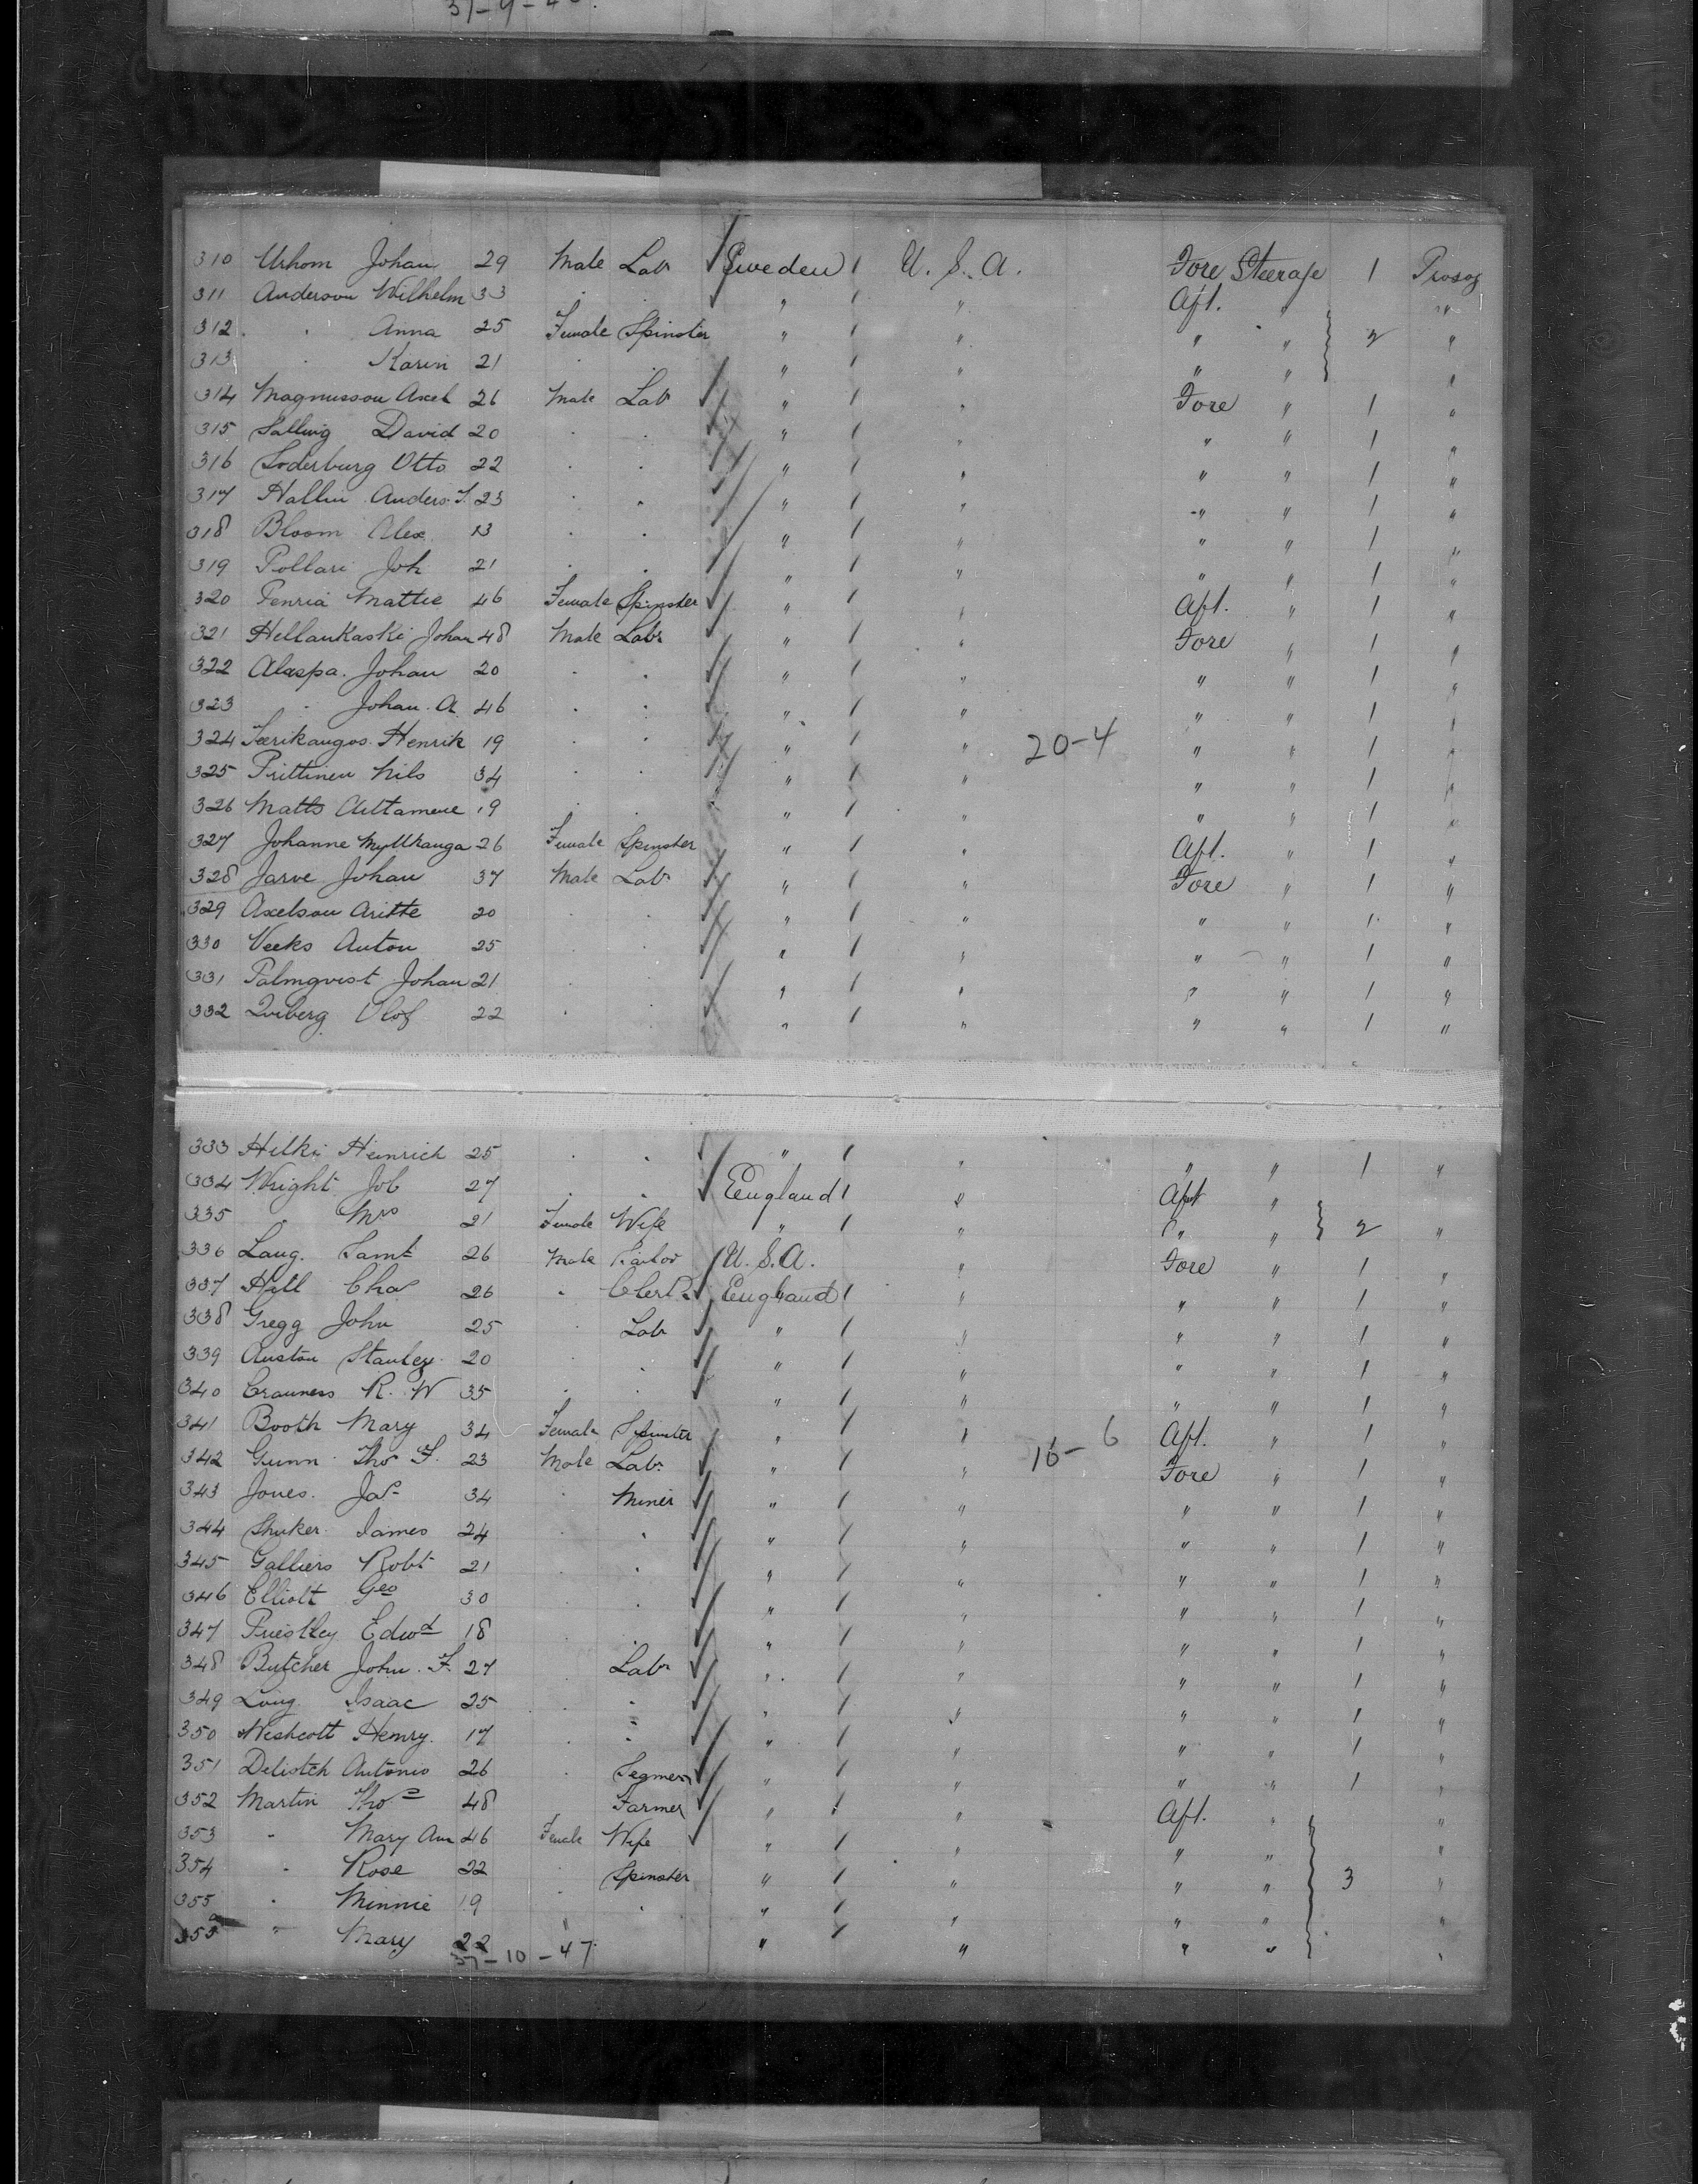 310 Urhom Johan 29 Male Labr Sweden / U. S. A. Fore Steerage 1 Prosog
311 Anderson Wilhelm 33 . . " / " Aft. " "
312 . . Anna 25 Female Spinster " / " " " 2 "
313 . Karin 21 . . " / " " " "
314 Magnusson Axel 26 Male Labr " / " Fore " 1 "
315 Salling David 20 . . " / " " " 1 "
316 Soderburg Otto 22 . . " / " " " 1 "
317 Hallin Anders J. 23 . . " / " " " 1 "
318 Bloom Alex 13 . . " / " " " 1 "
319 Pollari Joh 21 . . " / " " " 1 "
320 Fenria Mattie 46 Female Spinster " / " Aft. " 1 "
321 Hellankaski Johan 48 Male Labr " / " Fore " 1 "
322 Alaspa Johan 20 . . " / " " " 1 "
323 . Johan A. 46 . . " / " " " 1 "
324 Henrik 19 . . " / " 20-4 " " 1 "
325 Prittinen Nils 34 . . " / " " " 1 "
326 Matts 19 . . " / " " " 1 "
327 Johanne 26 Female Spinster " / " Aft. " 1 "
328 Jarve Johan 37 Male Labr " / " Fore " 1 "
329 Axelson 20 . . " / " " " 1 "
330 Veeks Anton 25 . . " / " " " 1 "
331 Palmqvist Johan 21 . . " / " " " 1 "
332 Qviberg Olof 22 . . " / " " " 1 "
333 Hilki Heinrich 25 . . " / " " " 1 "
334 Wright Job 27 . . England / " Aft "
335 . Mrs 21 Female Wife " / " " " 2 "
336 Lang. Saml 26 Male Sailor U. S. A. " Fore " 1 "
337 Hill Chas 26 " Clerk England / " " " 1 "
338 Gregg John 25 . Labr " / " " " 1 "
339 Auston Stanley 20 . . " / " " " 1 "
340 R. W 35 . . " / " " " 1 "
341 Booth Mary 34 Female Spinster " / " Aft. " 1 "
342 Gunn Thos F. 23 Male Labr " / " 16-6 Fore " 1 "
343 Jones. Jas 34 . Miner " / " " " 1 "
344 Shuker James 24 . . " / " " " 1 "
345 Galliers Robt 21 . . " / " " " 1 "
346 Elliott Geo 30 . . " / " " " 1 "
347 Priestley Edwd 18 . . " / " " " 1 "
348 Butcher John F. 27 . Labr " / " " " 1 "
349 Long Isaac 25 . " " / " " " 1 "
350 Westcott Henry. 17 . " " / " " " 1 "
351 Delistch Antonio 26 . " / " " " 1 "
352 Martin Thos 48 Farmer " " " Aft. " "
353 " Mary Ann 46 Female Wife " / " " " "
354 " Rose 22 . Spinster " / " " " 3 "
355 " Minnie 19 . . " / " " " "
355a " Mary 22 " " / " " " "
37-10-47